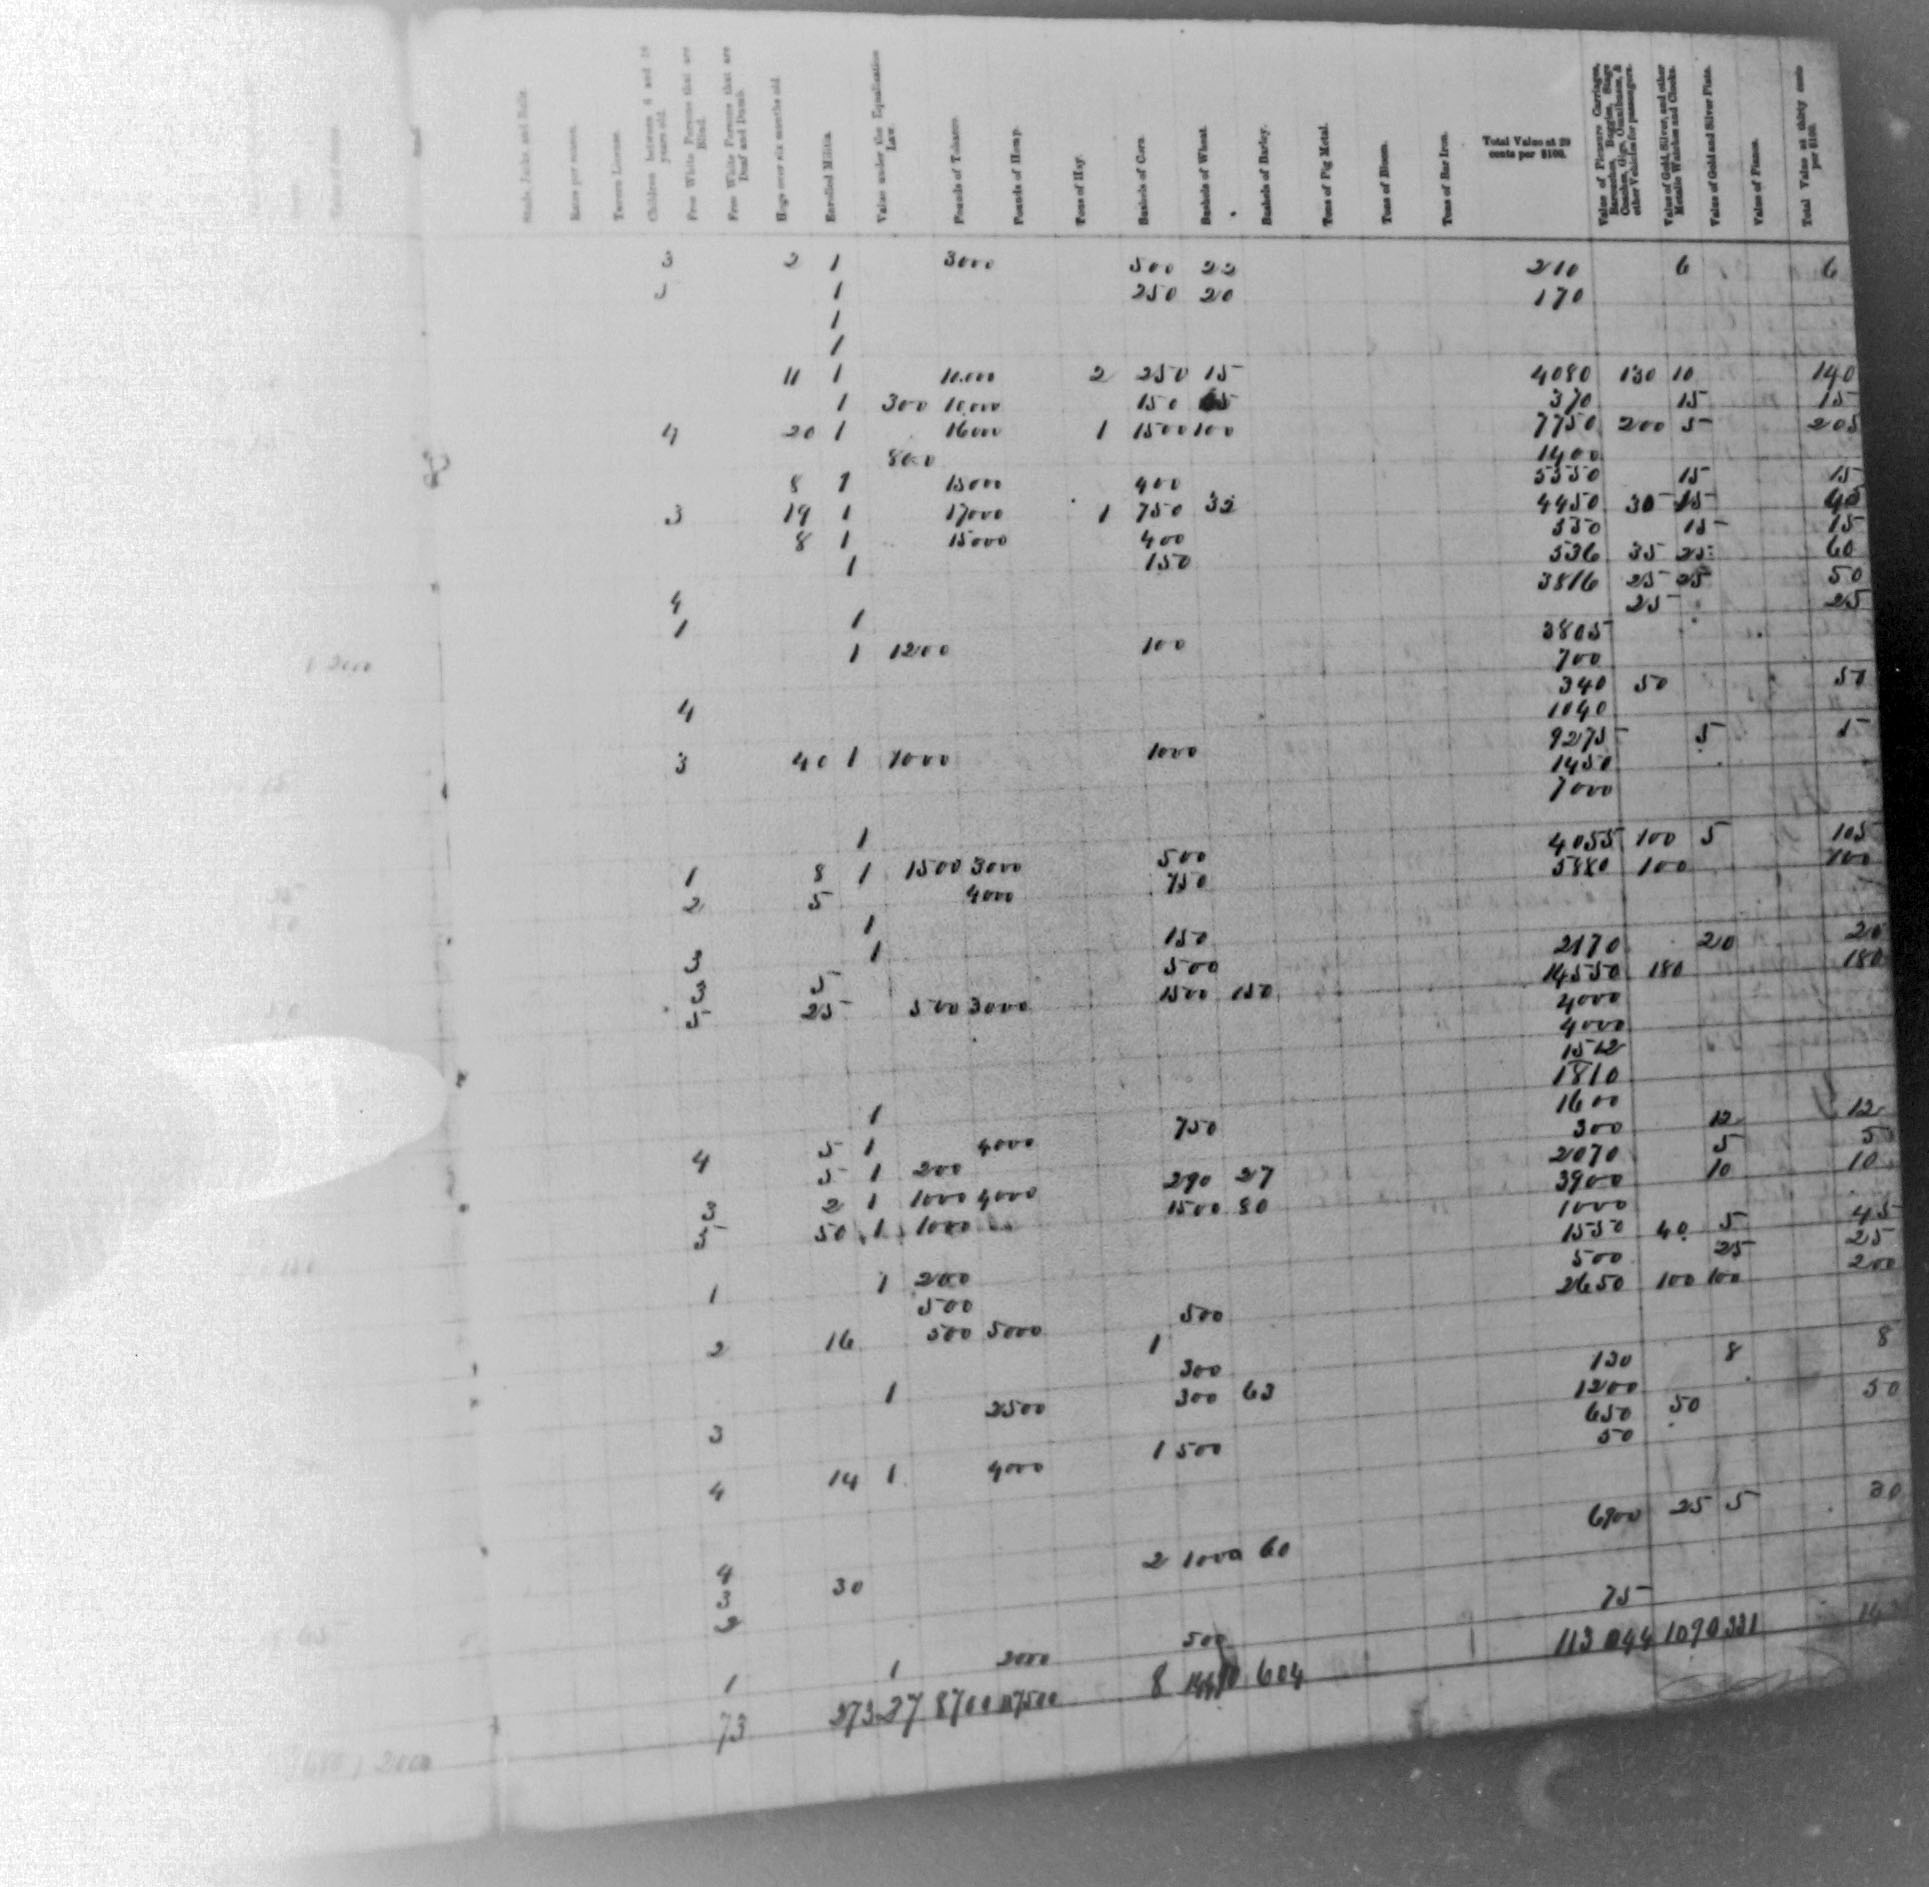 Studs, Jacks and Bulls.
Rates per season.
Tavern License.
Children between 6 and 18 years old.
Free White Persons that are Blind.
Free White Persons that are Deaf and Dumb.
Hogs over six months old.
Enrolled Militia.
Value under the Equalization Law.
Pounds of Tobacco.
Pounds of Hemp.
Tons of Hay.
Bushels of Corn.
Bushels of Wheat.
Bushels of Barley.
Tons of Pig Metal.
Tons of Bloom.
Tons of Bar Iron.
Total Value at 20 cents per $100.
Value of Pleasure Carriages, Barouches, Buggies, Stage Coaches, Gigs, Omnibuses, & other Vehicles for passengers.
Value of Gold, Silver, and other Metalic Watches and Clocks.
Value of Gold and Silver Plate.
Value of Pianos.
Total Value at thirty cents per $100.
3 2 1 3000 500 22 210 6 6
1 250 20 170
1
1
11 1 10000 2 250 15 4080 130 10 140
1 300 10000 150 370 15 15
4 20 1 16000 1 1500 100 7750 200 5 205
800 1400
8 1 15000 400 5350 15 15
3 19 1 17000 1 750 32 4450 30 15 45
8 1 15000 400 550 15 15
1 150 536 35 25 60
3816 25 25 50
4 25 25
1 1 3805
1 1200 100 700
340 50 50
4 1040
9275 5 5
3 40 1 1000 1000 1450
7000
1 4055 100 5 105
1 8 1 1500 3000 500 100 100
2 5 4000 750
1
3 1 150 2170 20 20
3 5 500 14550 180 180
5 25 500 3000 1500 150 4000
4000
1512
1810
1 1600
5 1 4000 750 300 12 12
4 5 1 200 2070 5 5
3 2 1 1000 4000 290 27 3900 10 10
5 50 1 1000 1500 80 1000
1550 40 5 45
1 1 200 500 25 25
500 2650 100 100 200
2 16 500 5000 500
1
300 130 8 8
1 2500 300 63 1200
3 650 50 50
50
4 14 1 4000 1 500
6900 25 5 30
4 30 2 1000 60
3
3 75
1 1 2000 500
73 273 27 8700 8 604 113044 1090 331